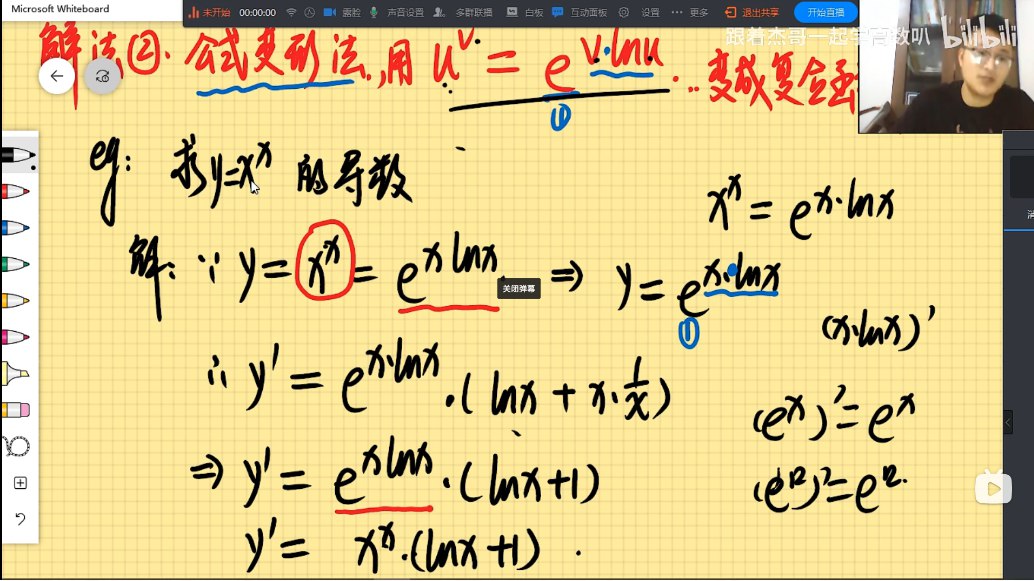 Microsoft Whiteboard
未开始 00:00:00 露脸 声音设置 多群联播 白板 互动面板 设置 更多 退出共享 开始直播
跟着杰哥一起学高数叭 bilibili
解法②. 公式变形法, 用 u^v = e^{v·lnu} .. 变成复合函
①
eg: 求 y=x^x 的导数
x^x = e^{x·lnx}
解: ∵ y = x^x = e^{x lnx} ⇒ y = e^{x·lnx}
关闭弹幕
①
(x·lnx)'
∴ y' = e^{x·lnx} ·( lnx + x·1/x )
(e^x)' = e^x
⇒ y' = e^{x lnx} ·(lnx+1)
y' = x^x ·(lnx+1) .